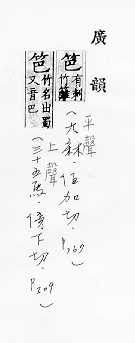 廣韻
笆 有刺竹籬
平聲
(九麻.伯加切.P.169)
笆 竹名出蜀又音巴
上聲
(三十五馬.傍下切.P.309)